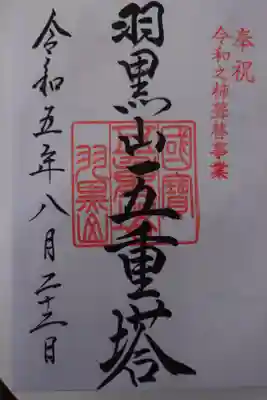 奉祝
令和之杮葺替事業
羽黒山五重塔
國寶
羽黒山
令和五年八月二十三日